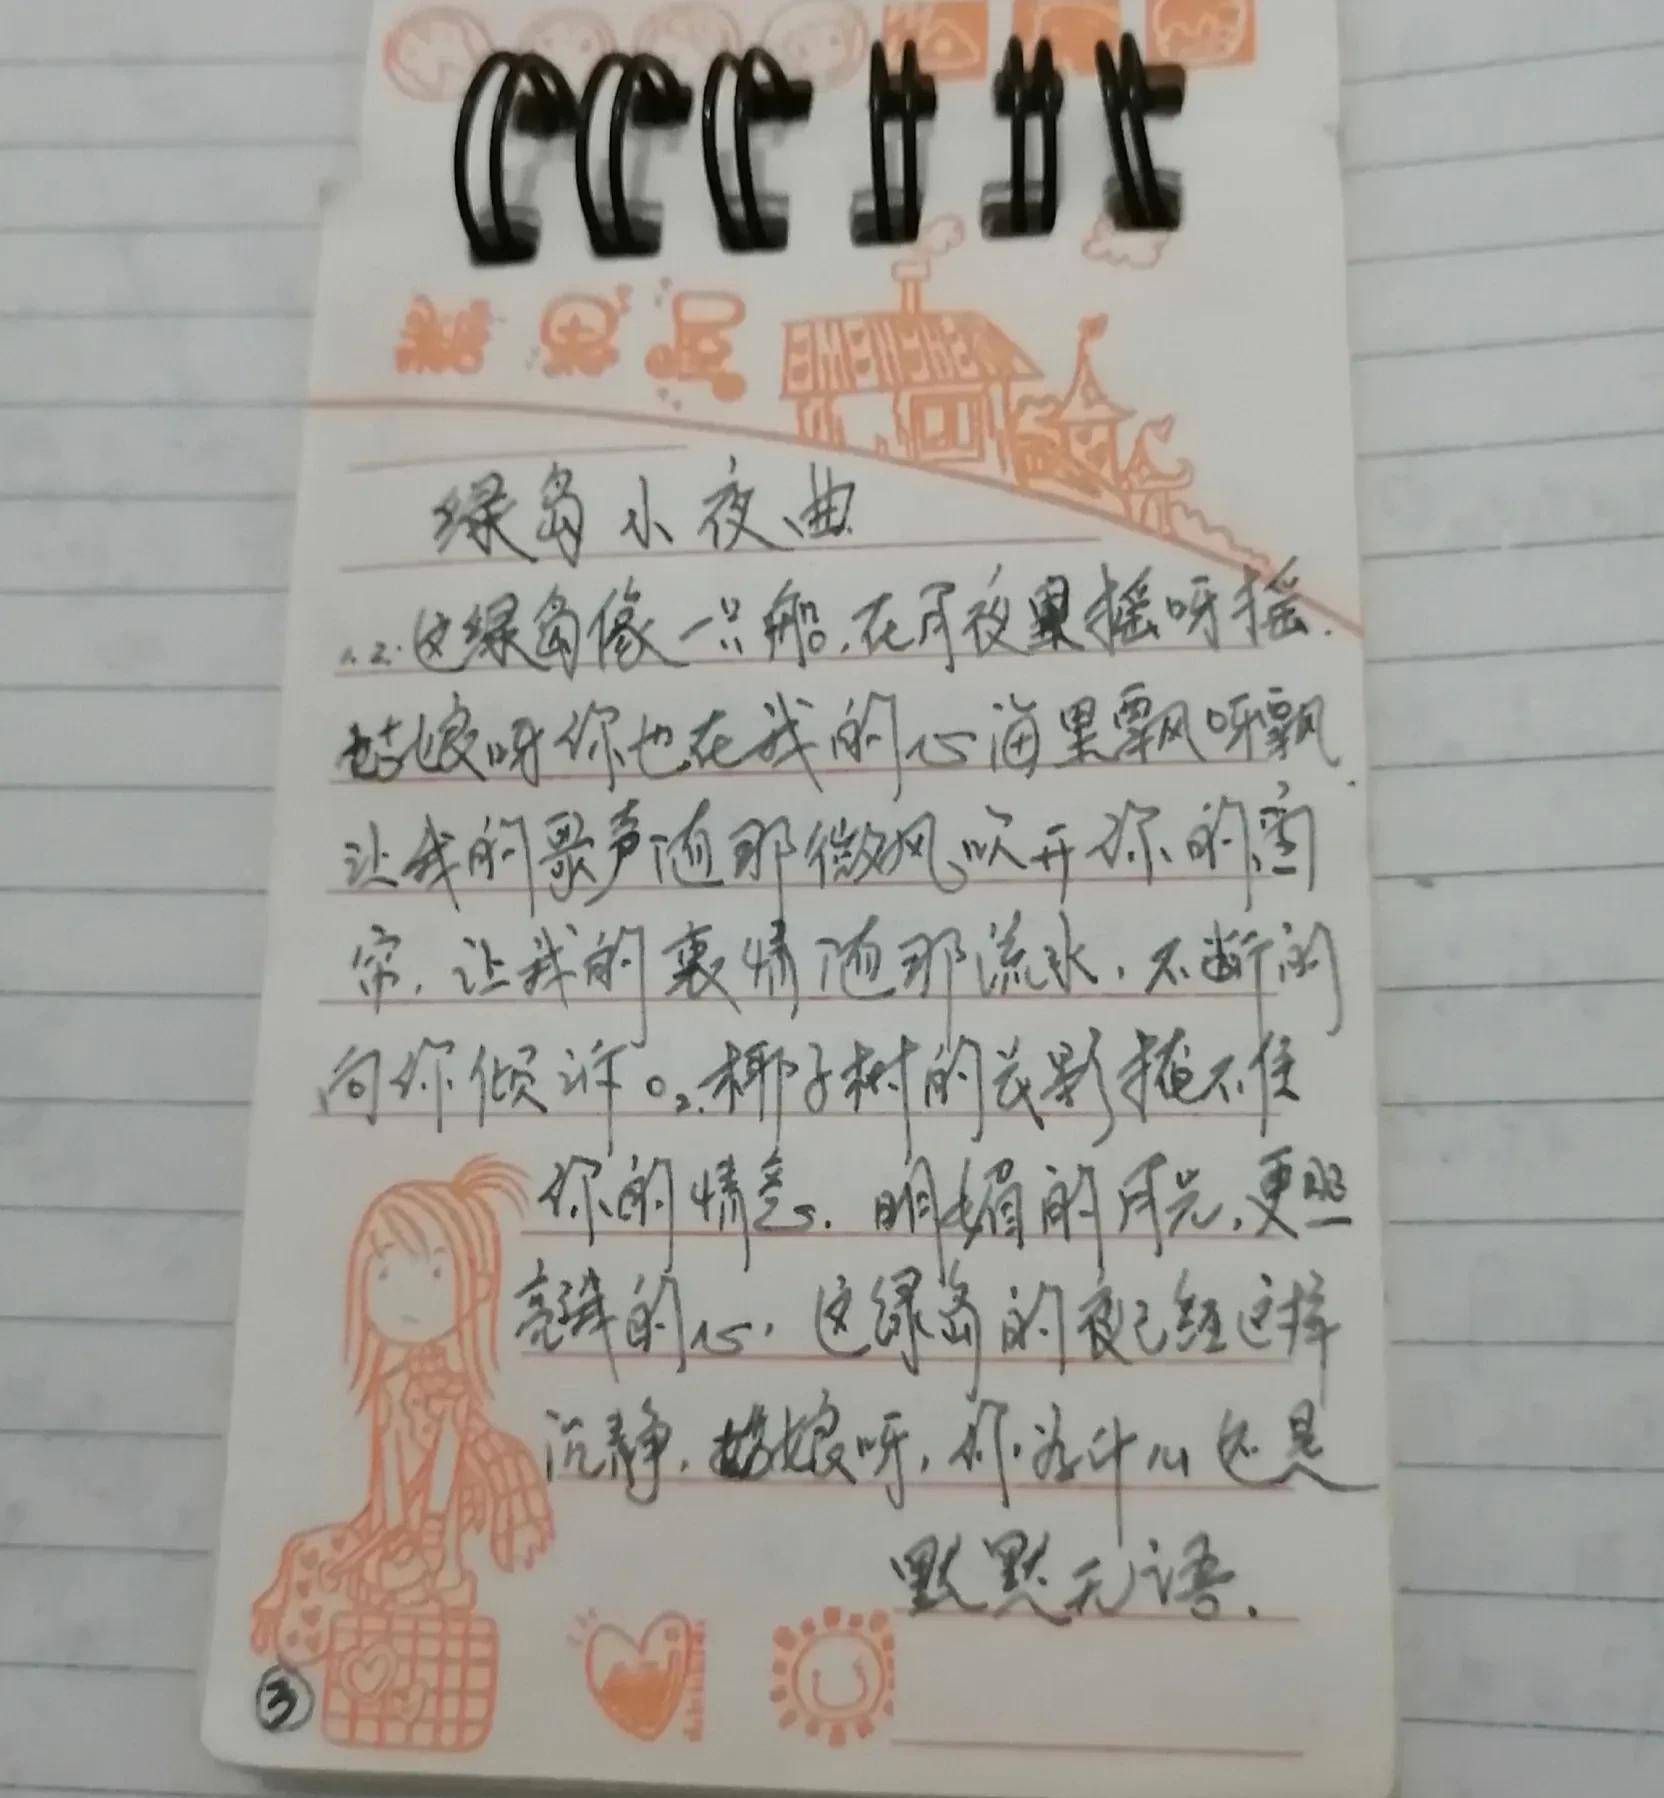 绿岛小夜曲
1.2.这绿岛像一只船,在月夜里摇呀摇.
姑娘呀你也在我的心海里飘呀飘.
让我的歌声随那微风吹开你的窗
帘,让我的衷情随那流水,不断的
向你倾诉。2.椰子树的长影掩不住
你的情意.明媚的月光,更照
亮我的心,这绿岛的夜已经这样
沉静,姑娘呀,你为什么还是
默默无语.
③